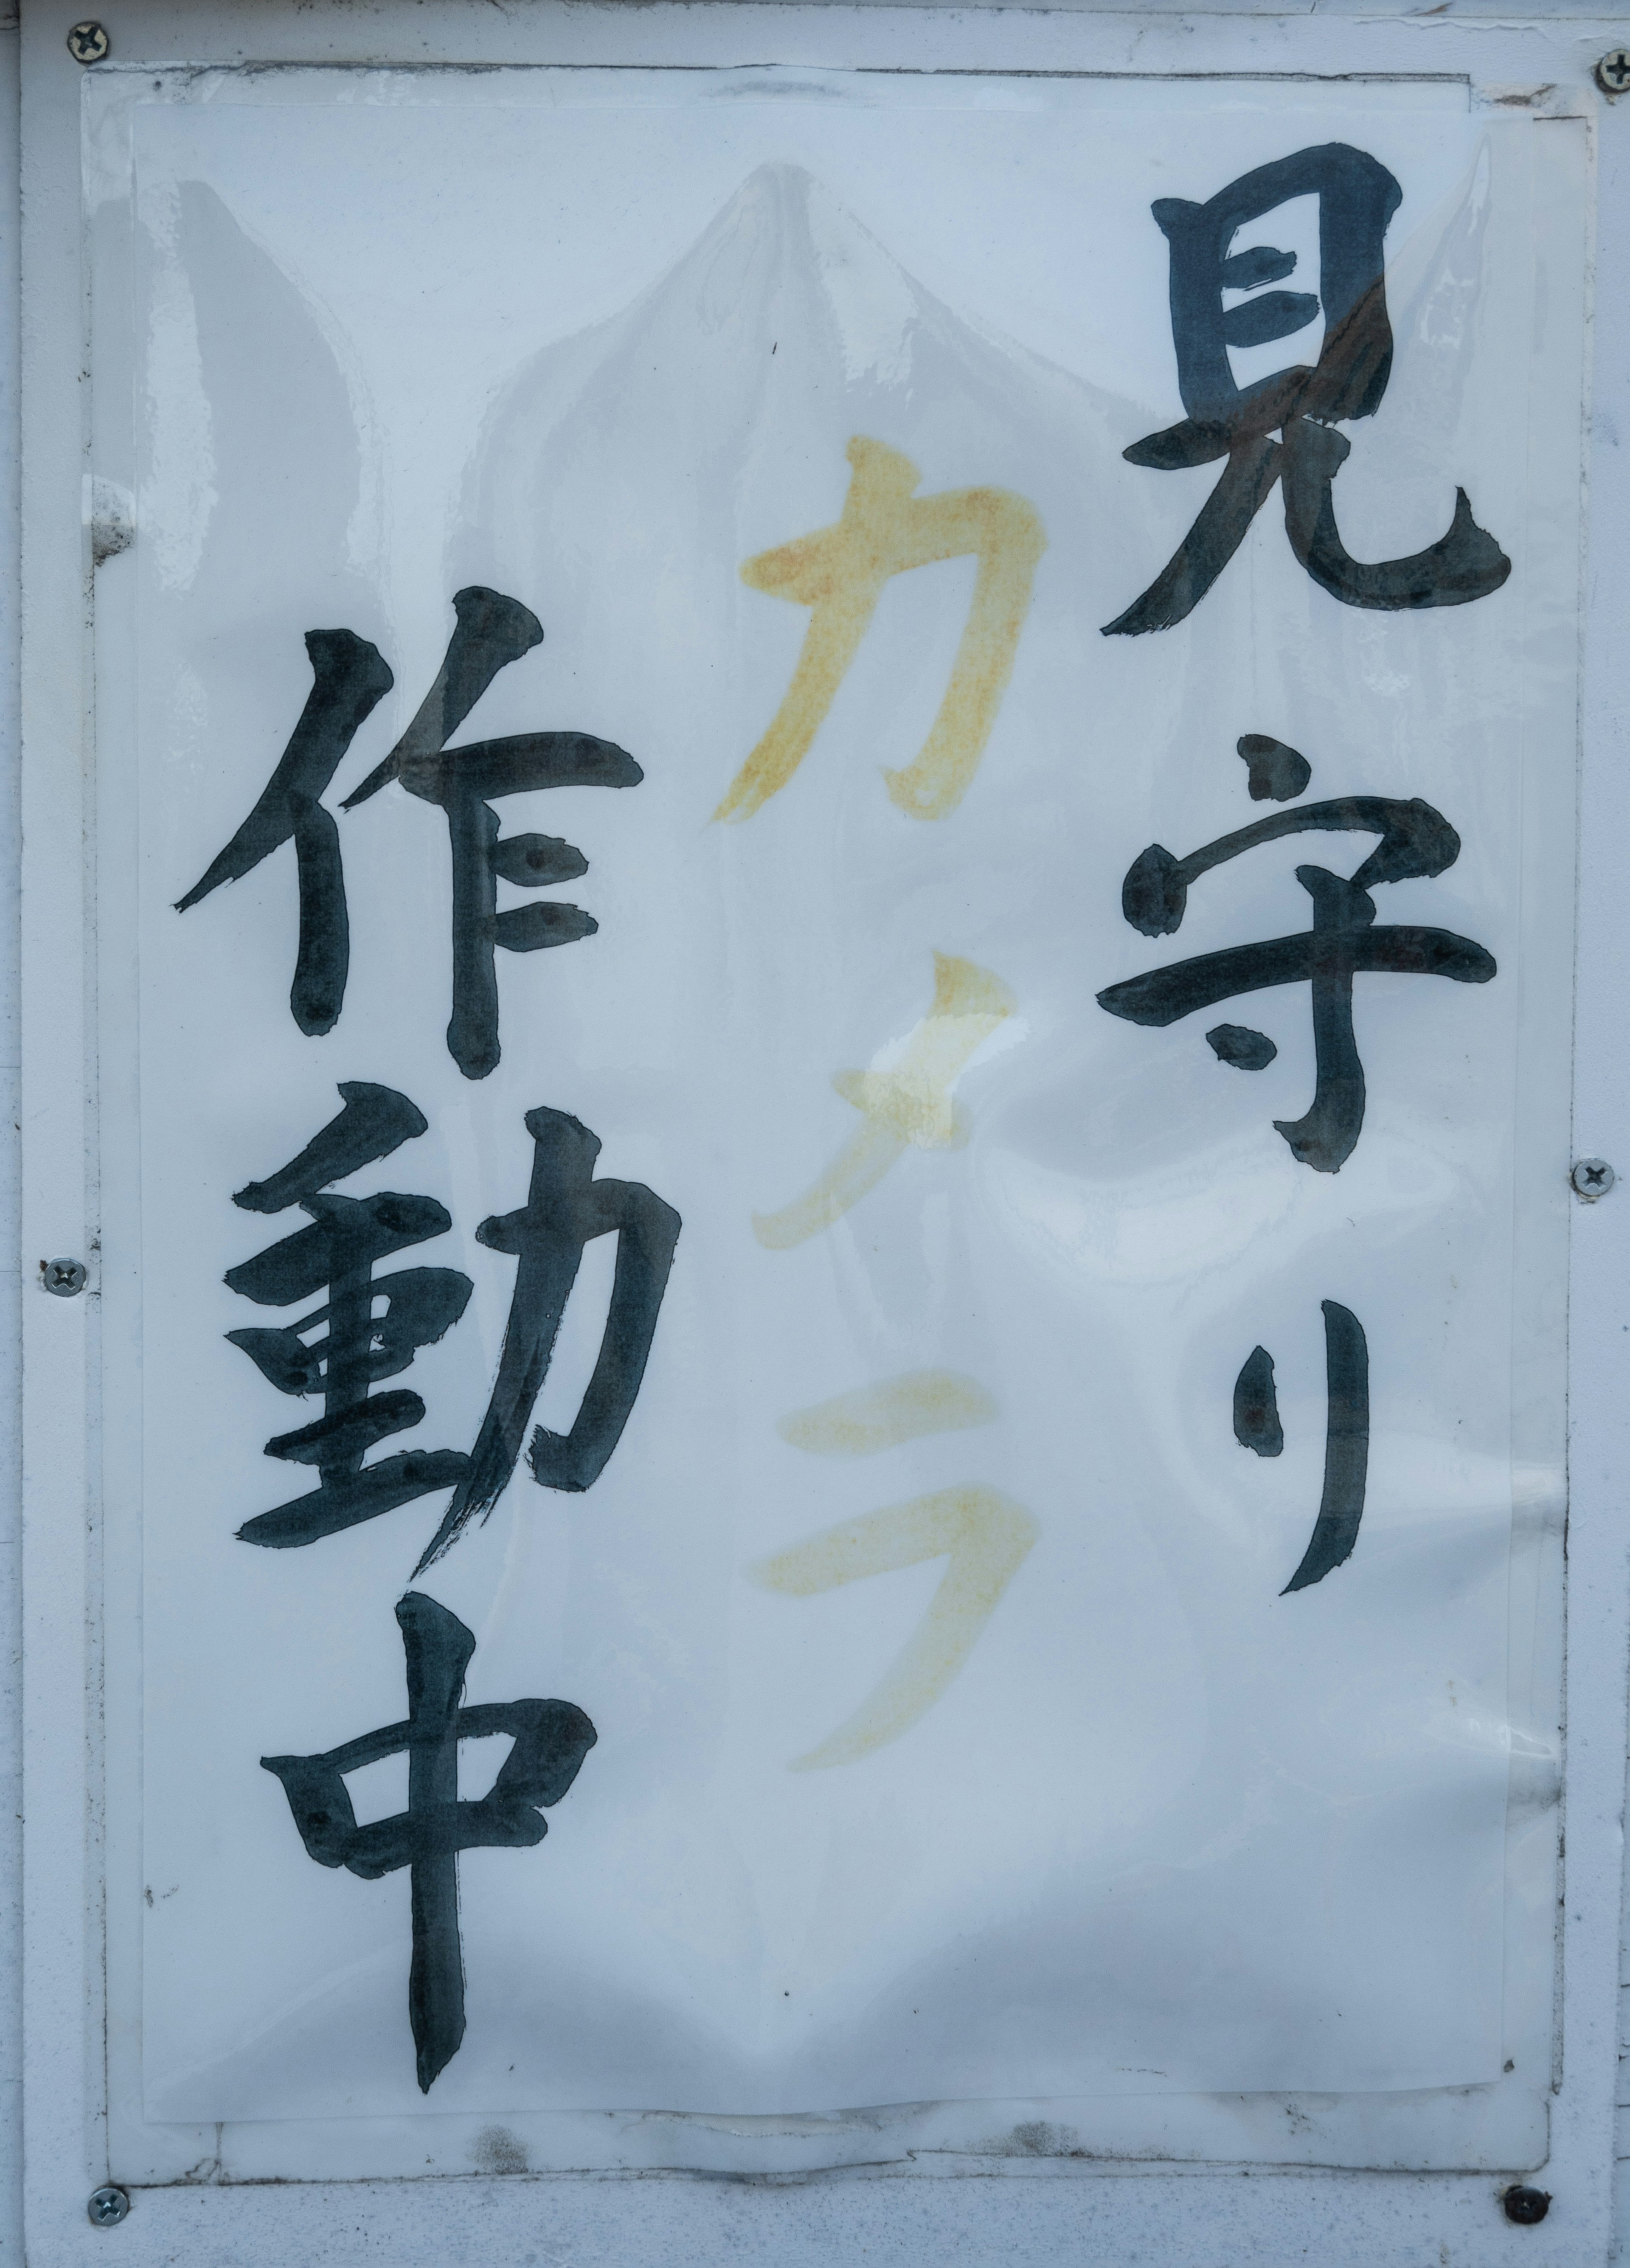 見守り
カメラ
作動中